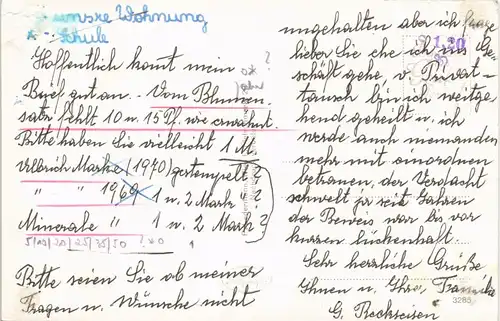 unsre Wohnung
Schule
Hoffentlich komt mein
Brief gut an. – Vom Blumen-
satz fehlt 10 u. 15 Pf. wie erwähnt.
Bitte haben Sie vielleicht 1 M
Ulbrich Marke (1970) gestempelt?
" " 1969 1 u. 2 Mark?
Minerale " 1 u. 2 Mark?
5/10/20/25/35/50 ?
1
Bitte seien Sie ob meiner
Fragen u. Wünsche nicht
?
ungehalten aber ich frage
lieber Sie ehe ich ins Ge-
schäft gehe, v. Privat-
tausch bin ich weitge-
hend geheilt u. ich
werde auch niemanden
mehr mit einordnen
betrauen, der Verdacht
schwelt ja seit Jahren
der Beweis war bis vor
kurzem lückenhaft.
Sehr herzliche Grüße
Ihnen u. Ihrer Familie
G.
1.20
3285